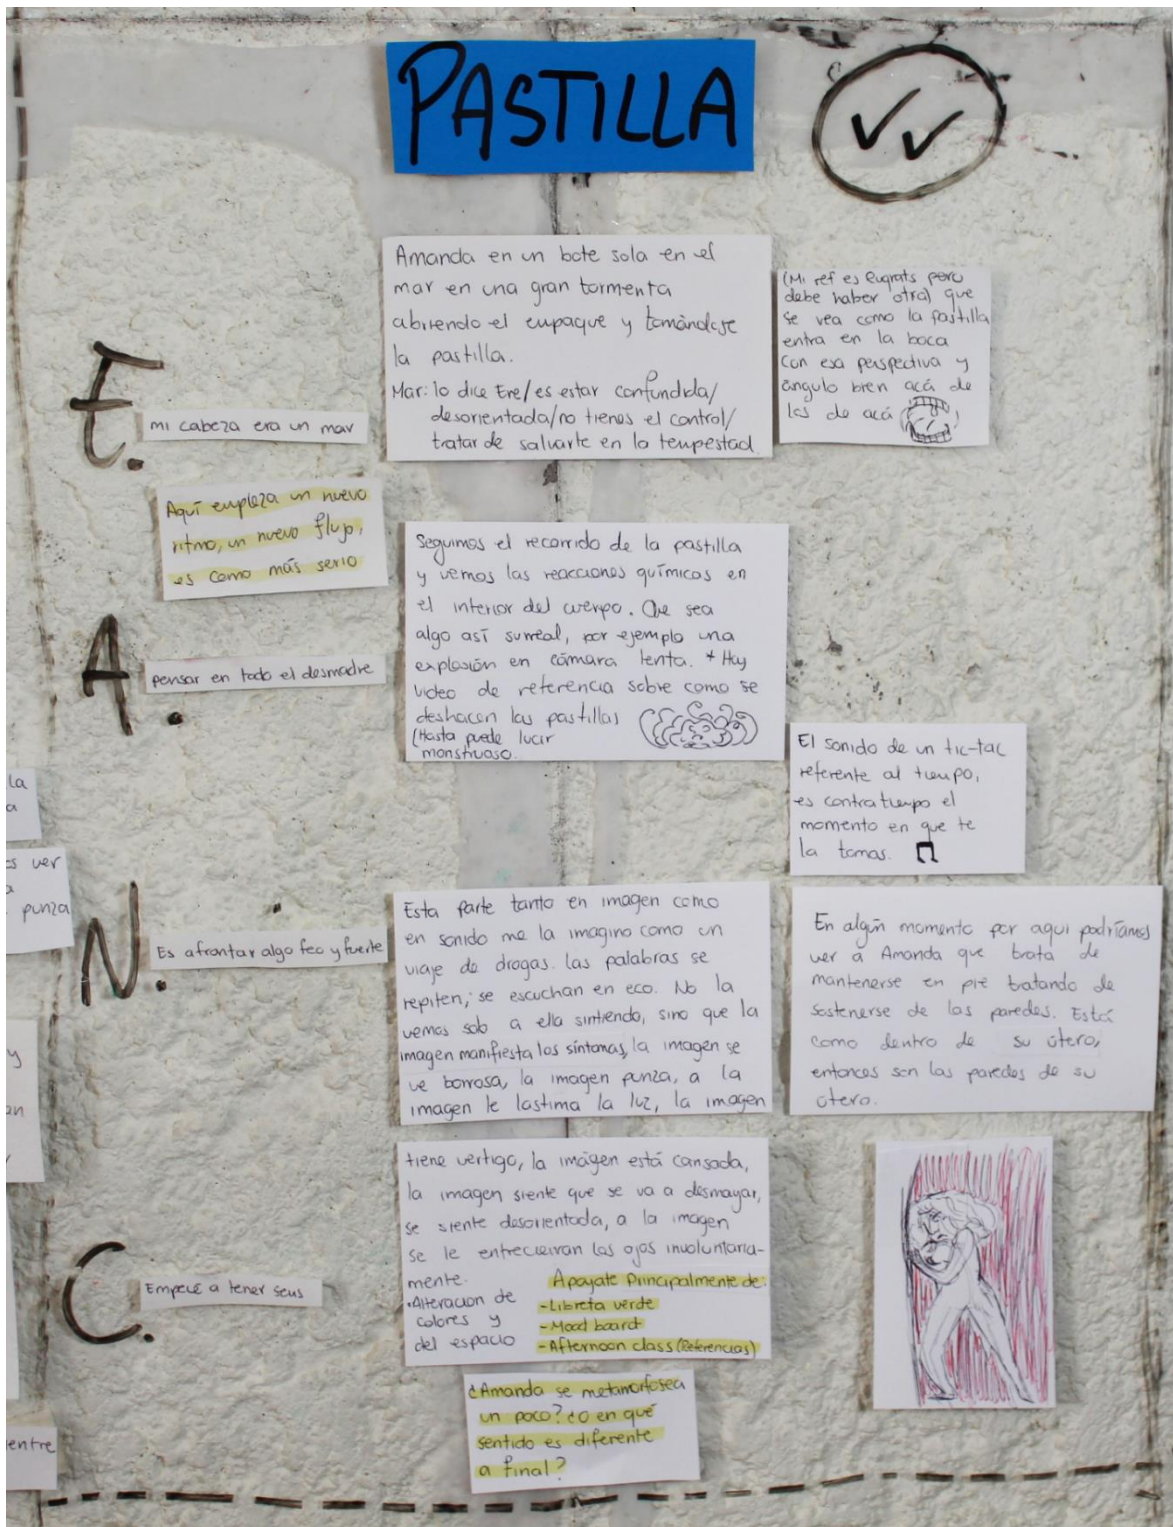 PASTILLA
E.
mi cabeza era un mar
Amanda en un bote sola en el
mar en una gran tormenta
abriendo el empaque y tomándose
la pastilla.
Mar: lo dice Ere/es estar confundida/
desorientada/no tienes el control/
tratar de salvarte en la tempestad
(Mi ref es Rugrats pero
debe haber otra) que
se vea como la pastilla
entra en la boca
con esa perspectiva y
ángulo bien acá de
los de acá
Aquí empieza un nuevo
ritmo, un nuevo flujo,
es como más serio
A.
pensar en todo el desmadre
Seguimos el recorrido de la pastilla
y vemos las reacciones químicas en
el interior del cuerpo. Que sea
algo así surreal, por ejemplo una
explosión en cámara lenta. * Hay
video de referencia sobre como se
deshacen las pastillas
(Hasta puede lucir
monstruoso.
El sonido de un tic-tac
referente al tiempo,
es contratiempo el
momento en que te
la tomas.
N.
Es afrontar algo feo y fuerte
Esta parte tanto en imagen como
en sonido me la imagino como un
viaje de drogas. las palabras se
repiten, se escuchan en eco. No la
vemos solo a ella sintiendo, sino que la
imagen manifiesta los síntomas, la imagen se
ve borrosa, la imagen punza, a la
imagen le lastima la luz, la imagen
En algún momento por aqui podríamos
ver a Amanda que trata de
mantenerse en pie tratando de
sostenerse de las paredes. Está
como dentro de su útero,
entonces son las paredes de su
útero.
C.
Empecé a tener
tiene vertigo, la imágen está cansada,
la imagen siente que se va a desmayar,
se siente desorientada, a la imagen
se le entrecierran los ojos involuntaria-
mente.
•Alteracion de
colores y
del espacio
Apoyate Principalmente de:
-Libreta verde
-Mood board
-Afternoon class (Referencias)
¿Amanda se metamorfosea
un poco? ¿o en qué
sentido es diferente
a final?
la
a
ver
punza
y
an
entre